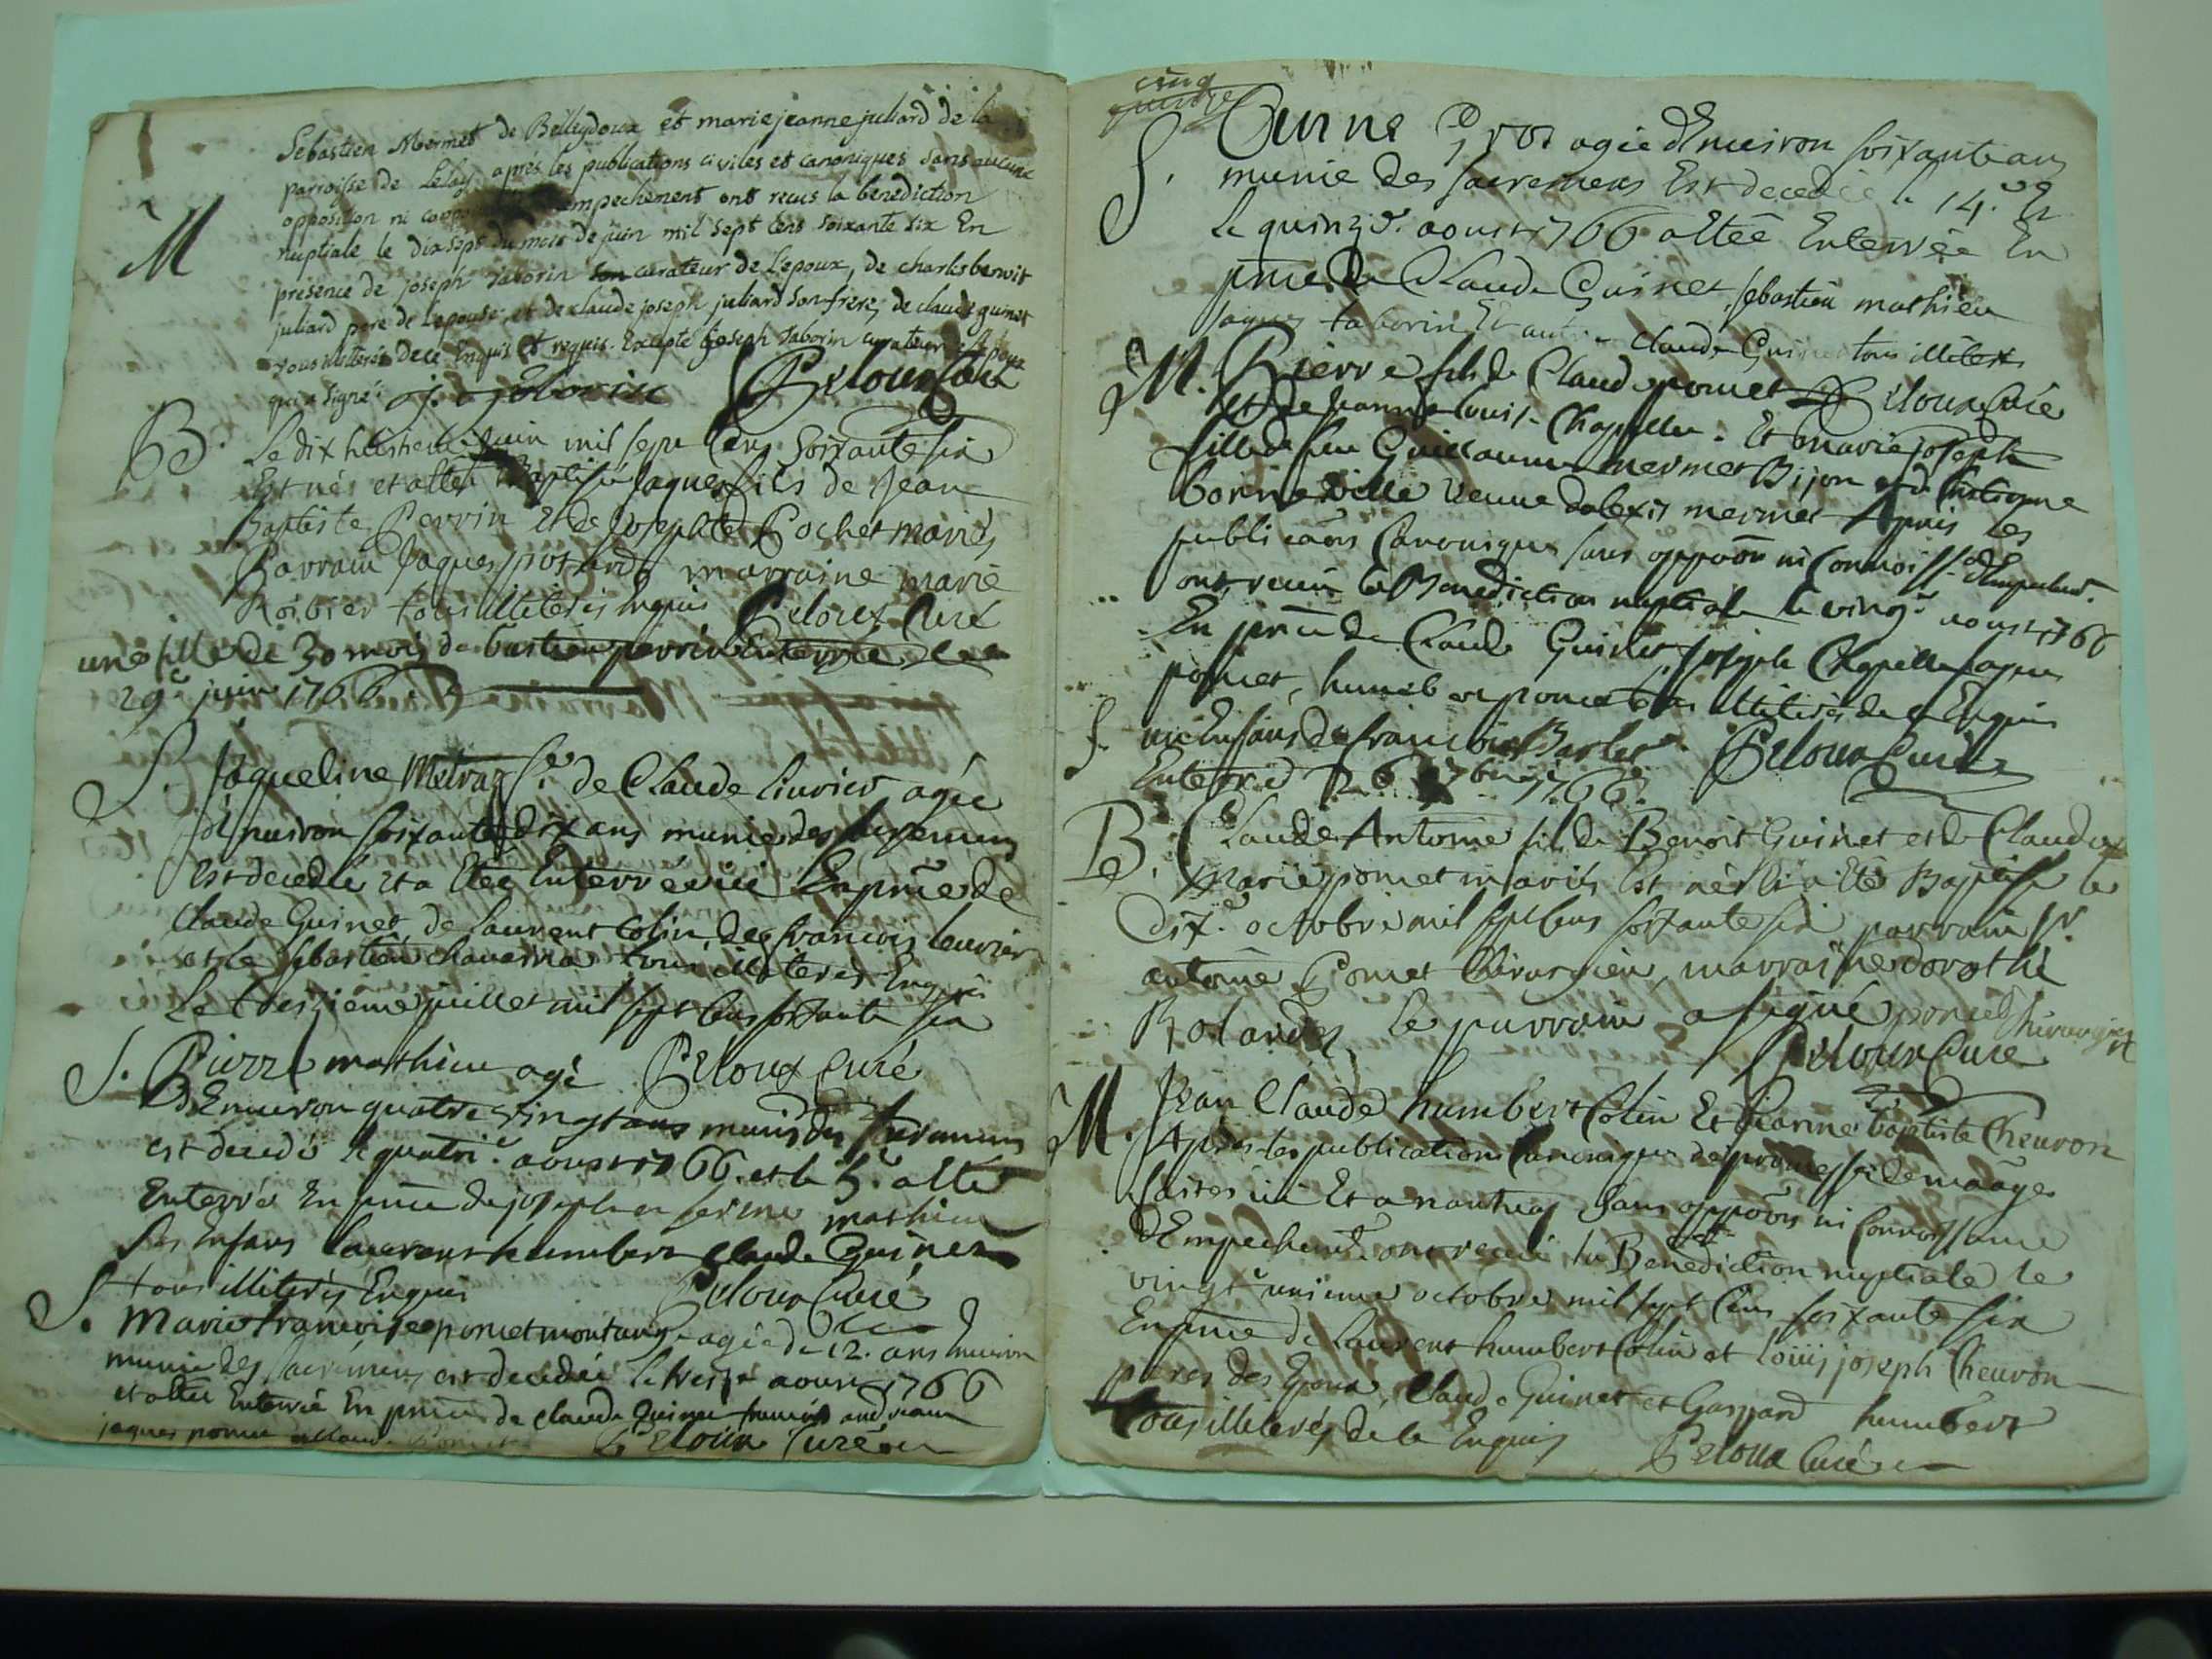 Sebastien Mermet de Belleydoux et marie jeanne juliard de la
parroisse de Lelex, après les publications civiles et canoniques sans aucune
opposition ni empechement ont recus la benediction
nuptiale le dix sept du mois de juin mil sept cens soixante six En
présence de joseph Taborin son curateur de Lepoux, de charles benoit
juliard pere de Lepouse, et de claude joseph juliard son frere, de claude guinet
tous illiterés de ce Enquis et requis. Excepté joseph Taborin curateur
qui a signé. j. taborin Peloux Curé
M
B. Le dix huitieme juin mil sept Cens Soixante six
Est nés et a etté Baptisé Jaques fils de Jean
Baptiste Perrin Et de Josephte Pochet mariés
Parrain Jaques marraine marie
tous illiterés Enquis Peloux Curé
une fille de 30 mois de bastien perrin Enterrée le
29e juin 1766
S. Jaqueline Metraz fe de Claude liurier agée
d'Enuiron soixante dix ans munie des sacremens
Est decedée et a Eteé Enterrée ici En pnce de
Claude Guinet, de Laurent Colin, de francois leurier
et de sebastien tous illiterés Enquis
Le treizieme juillet mil sept Cens soixante six
S. Pierre mathieu agé Peloux Curé
d'Enuiron quatre vingt ans muni des sacremens
est decedé le quatrie aoust 1766. et le 5e a eté
Enterré En pnce de joseph et mathieu
ses Enfans laurens humbert Claude Guinet
tous illiterés Enquis Peloux Curé
S. Marie francoise poncet montange agée de 12. ans Enuiron
munie des sacremens est decedée le treize aoust 1766
et a etée Enterrée En pnce de claude Guinet francois
jaques poncet Peloux Curé
cinq
S. Gros agée d'Enuiron soixante ans
munie des sacremens Est decedée le 14e Et
le quinze aoust 1766 a etée Enterrée En
pnce de Claude Guinet, sebastien mathieu
Jaques taborin Et autre Claude Guinet tous illiterés
M. Pierre fils de Claude poncet Peloux Curé
et de jeanne louise Chapellu. Et marie joseph
fille de feu Guillaume mermet Bijon et de
bonneville veuve d'alexis mermet Apres les
publicaons Canoniques sans oppoon ni Connoissce d'Empechemt.
ont recus la Benediction nuptiale le vingt aoust 1766
En pnce de Claude Guinet, joseph Chapellu jaques
poncet, humbert poncet tous illiterés de ce Enquis
S. un Enfant de francois Barlet Peloux Curé
Enterré 26 7bre 1766.
B. Claude Antoine fils de Benoit Guinet et de Claudine
Marie poncet mariés Est né Et a été Baptisé le
dixe octobre mil sept Cens soixante six parrain sr.
antoine Poncet Chirurgien, marraine dorothé
Rolandez, le parrain a signé poncet Chirurgien
Peloux Curé
M. Jean Claude humbert Colin Et Jeanne baptiste Cheuron
Après les publications Canoniques de promesses de mariage
faites ici Et a nantua Sans oppoon ni Connoissance
d'Empechemt. ont recus la Benediction nuptiale le
vingt unieme octobre mil sept Cens soixante six
En pnce de Laurent humbert Colin et Loüis joseph Cheuron
peres des Epoux, Claude Guinet et Gaspard humbert
Tous illiterés de ce Enquis Peloux Curé